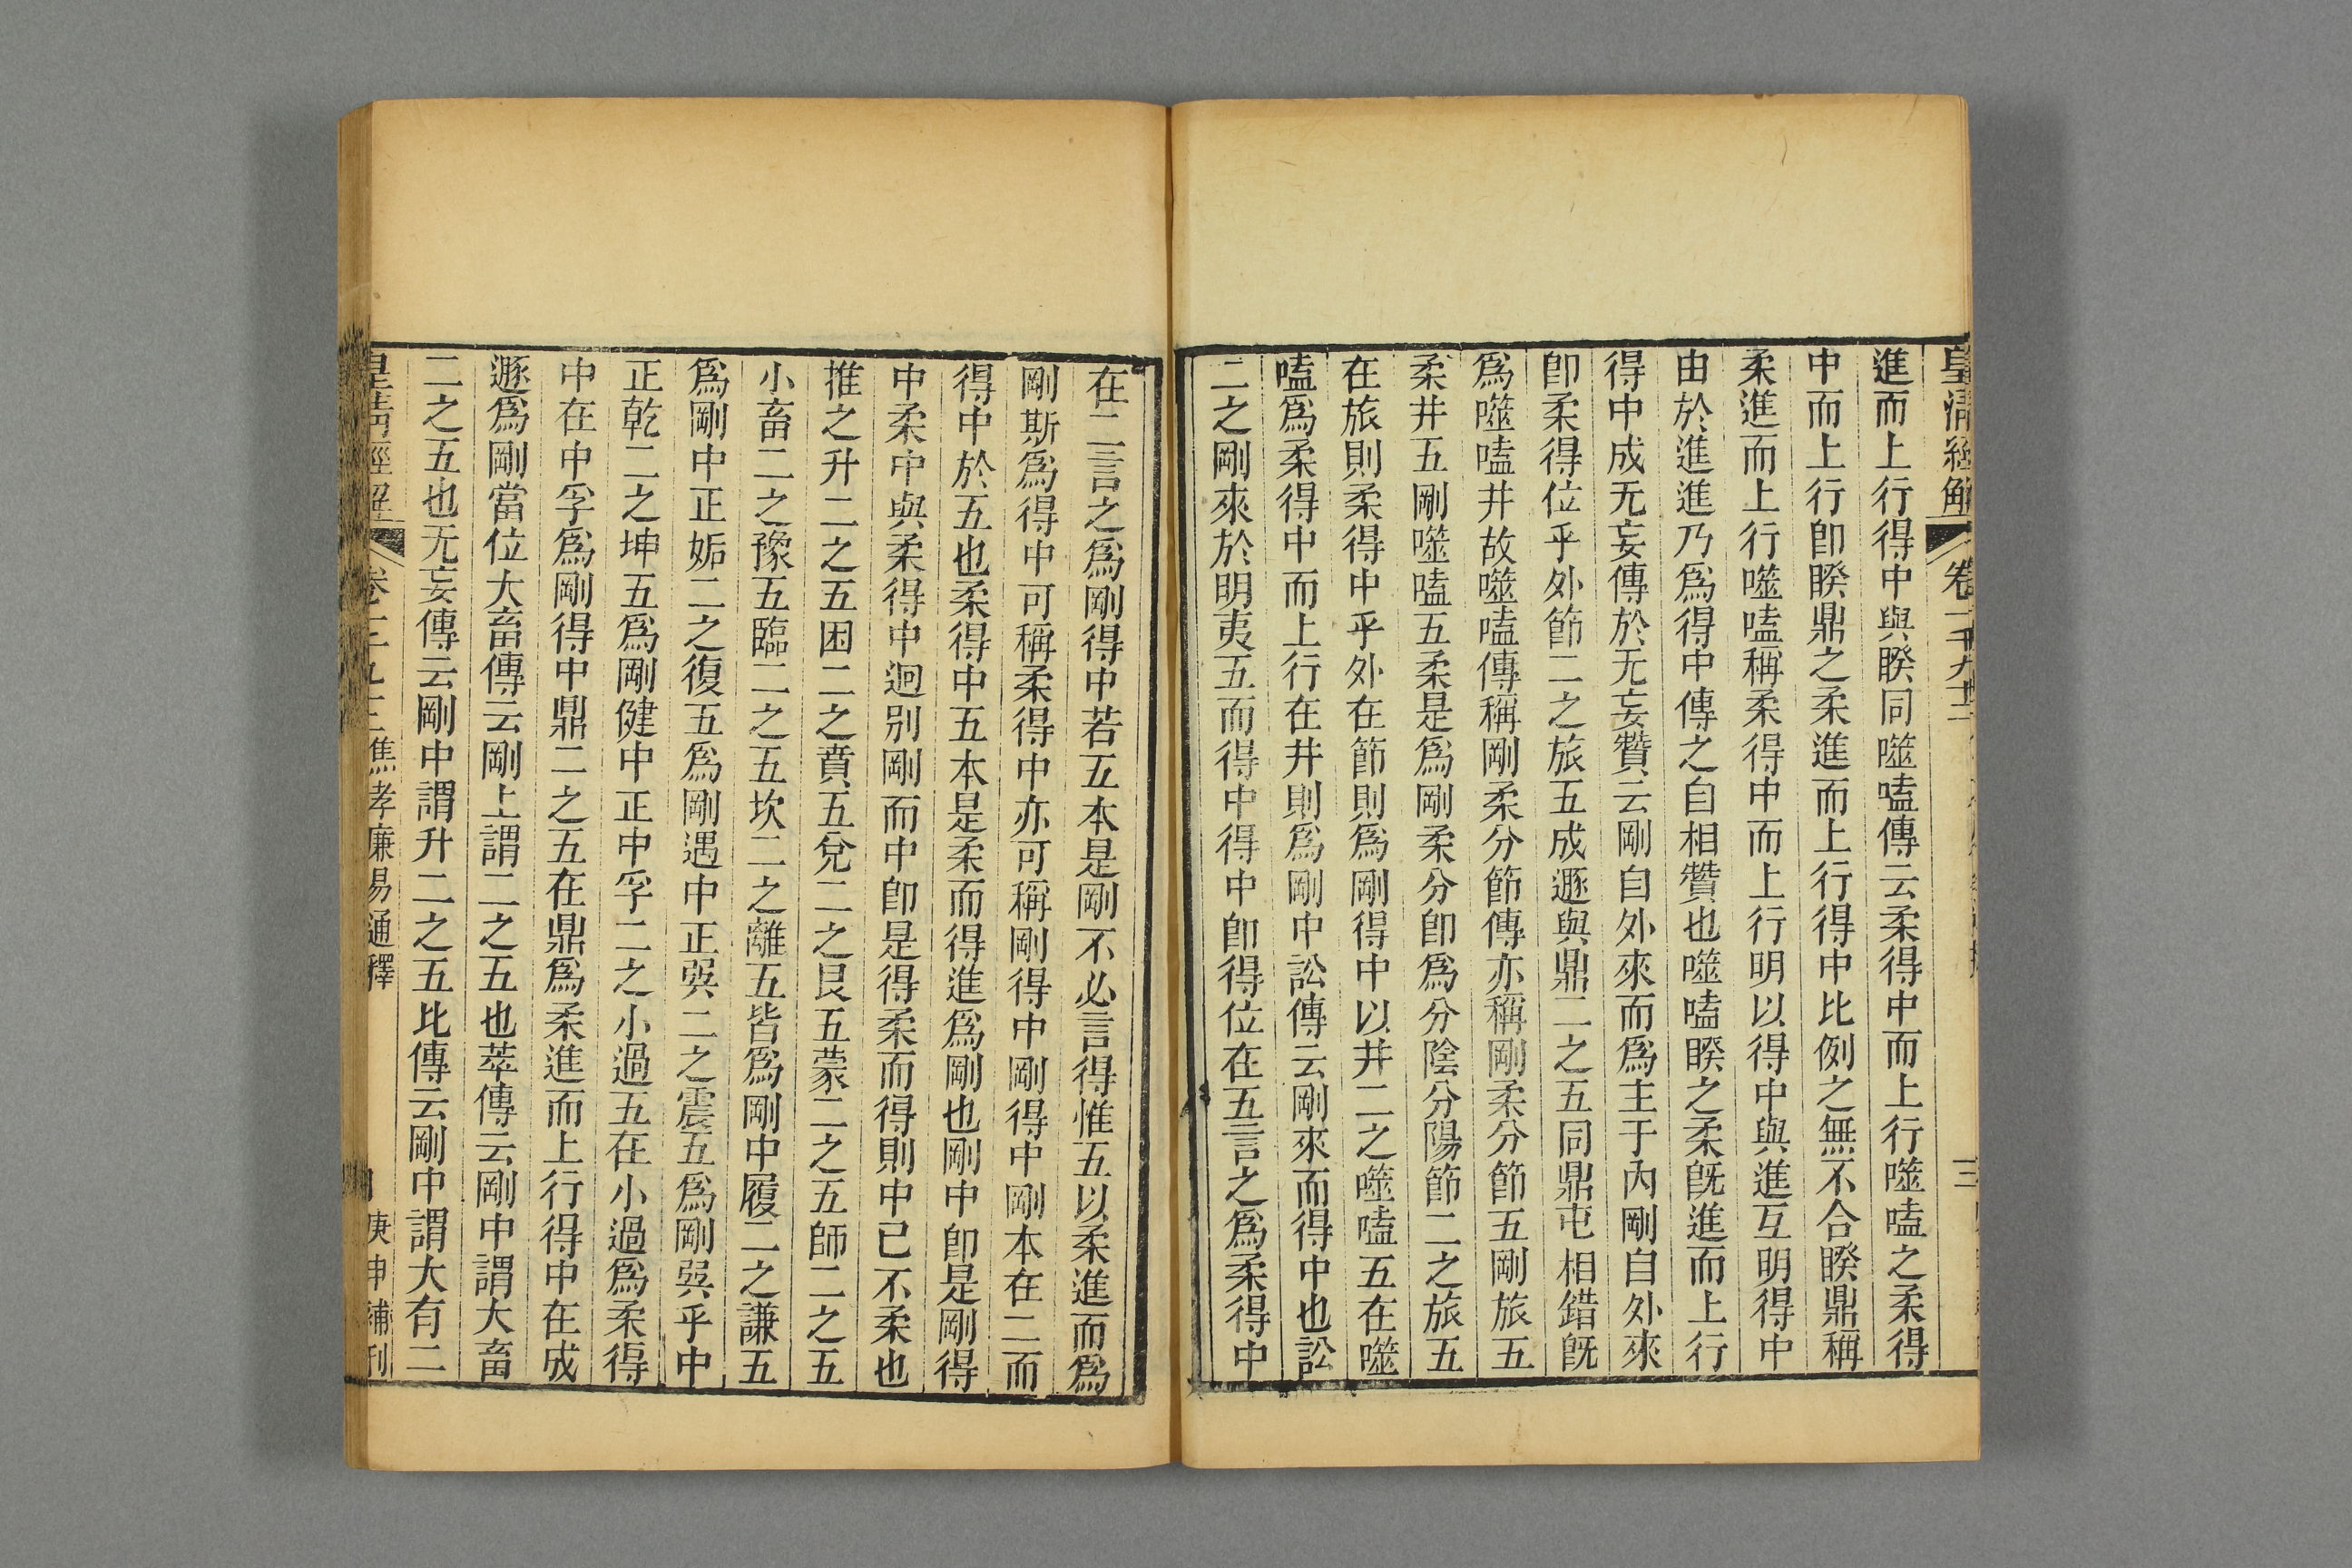 皇清經解 卷一千九十二 三
進而上行得中與睽同噬嗑傳云柔得中而上行噬嗑之柔得
中而上行卽睽鼎之柔進而上行得中比例之無不合睽鼎稱
柔進而上行噬嗑稱柔得中而上行明以得中與進互明得中
由於進進乃爲得中傳之自相贊也噬嗑睽之柔旣進而上行
得中成无妄傳於无妄贊云剛自外來而爲主于內剛自外來
卽柔得位乎外節二之旅五成遯與鼎二之五同鼎屯相錯旣
爲噬嗑井故噬嗑傳稱剛柔分節傳亦稱剛柔分節五剛旅五
柔井五剛噬嗑五柔是爲剛柔分卽爲分陰分陽節二之旅五
在旅則柔得中乎外在節則爲剛得中以井二之噬嗑五在噬
嗑爲柔得中而上行在井則爲剛中訟傳云剛來而得中也訟
二之剛來於明夷五而得中得中卽得位在五言之爲柔得中
在二言之爲剛得中若五本是剛不必言得惟五以柔進而爲
剛斯爲得中可稱柔得中亦可稱剛得中剛得中剛本在二而
得中於五也柔得中五本是柔而得進爲剛也剛中卽是剛得
中柔中與柔得中迥別剛而中卽是得柔而得則中已不柔也
推之升二之五困二之賁五兌二之艮五蒙二之五師二之五
小畜二之豫五臨二之五坎二之離五皆爲剛中履二之謙五
爲剛中正姤二之復五爲剛遇中正巽二之震五爲剛巽乎中
正乾二之坤五爲剛健中正中孚二之小過五在小過爲柔得
中在中孚爲剛得中鼎二之五在鼎爲柔進而上行得中在成
遯爲剛當位大畜傳云剛上謂二之五也萃傳云剛中謂大畜
二之五也无妄傳云剛中謂升二之五比傳云剛中謂大有二
皇清經解 卷一千九十二 焦孝廉易通釋 庚申補刊